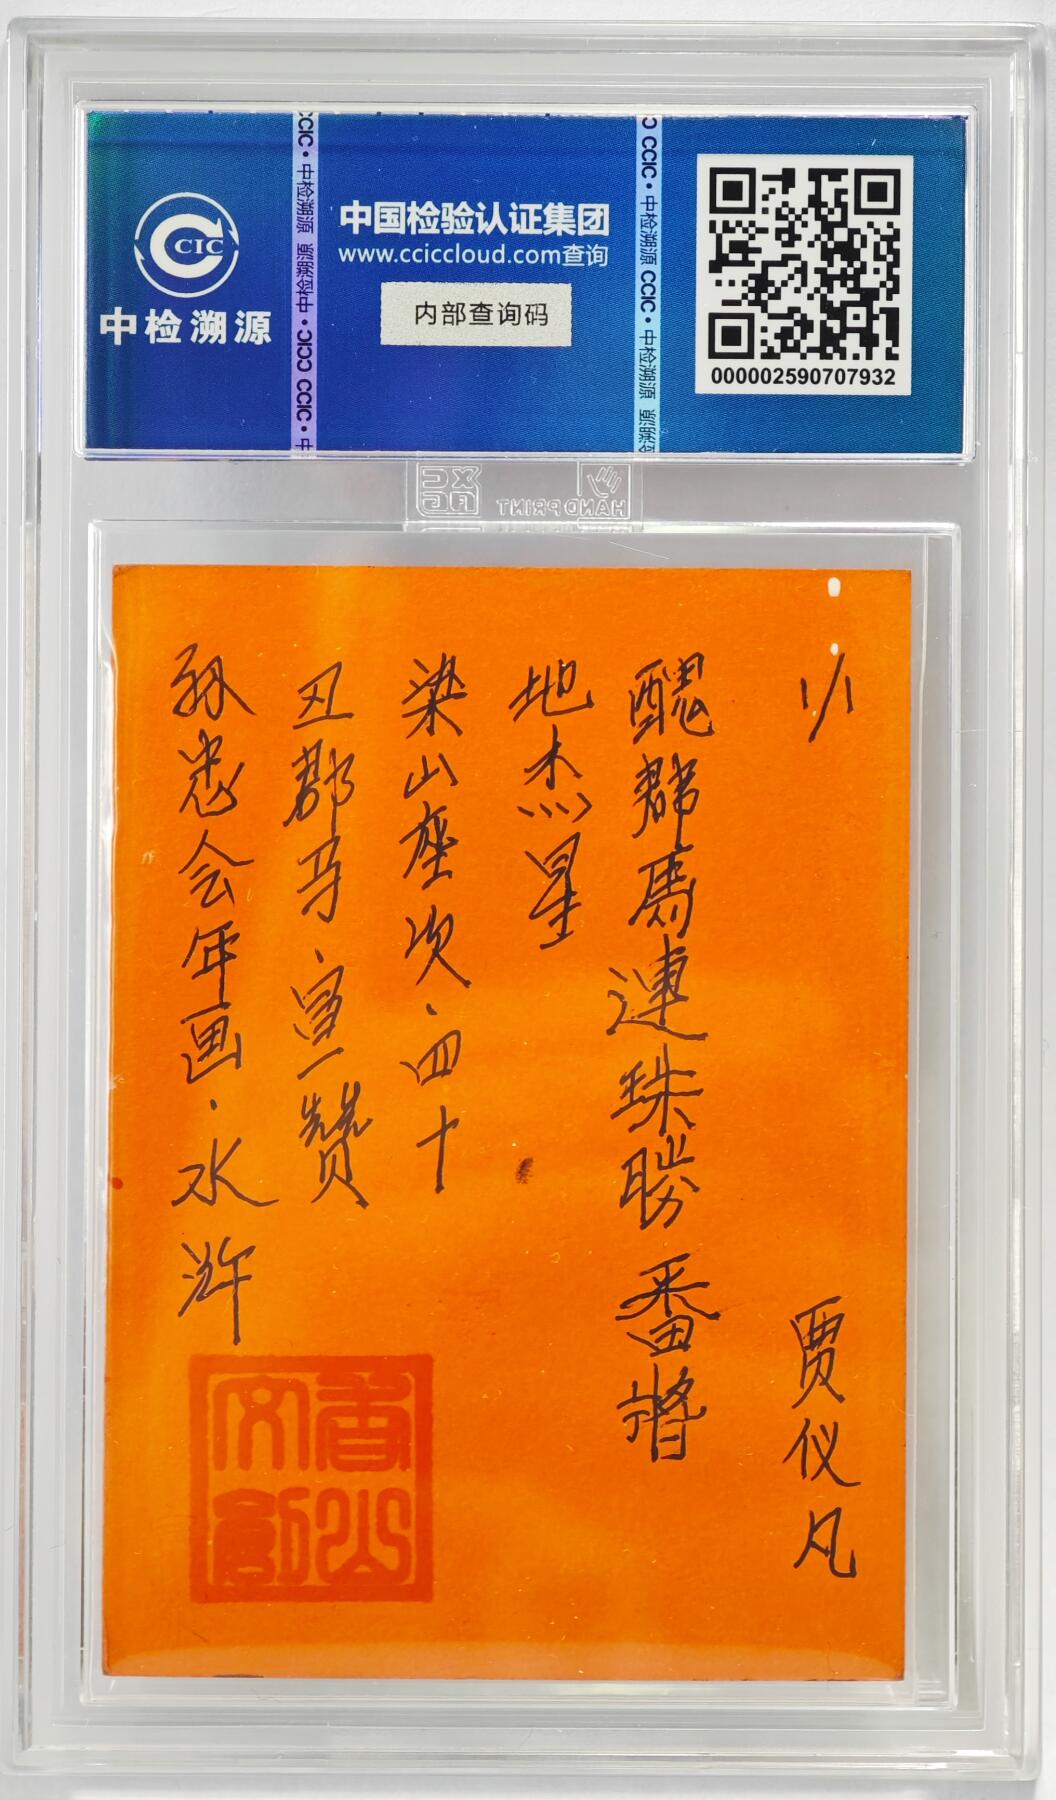 CCIC
中检溯源
中国检验认证集团
www.cciccloud.com查询
内部查询码
000002590707932
HAND PRINT
1/1
贾仪凡
醜郡馬連珠勝番將
地杰星
梁山座次·四十
丑郡马·宣赞
孙忠会年画·水浒